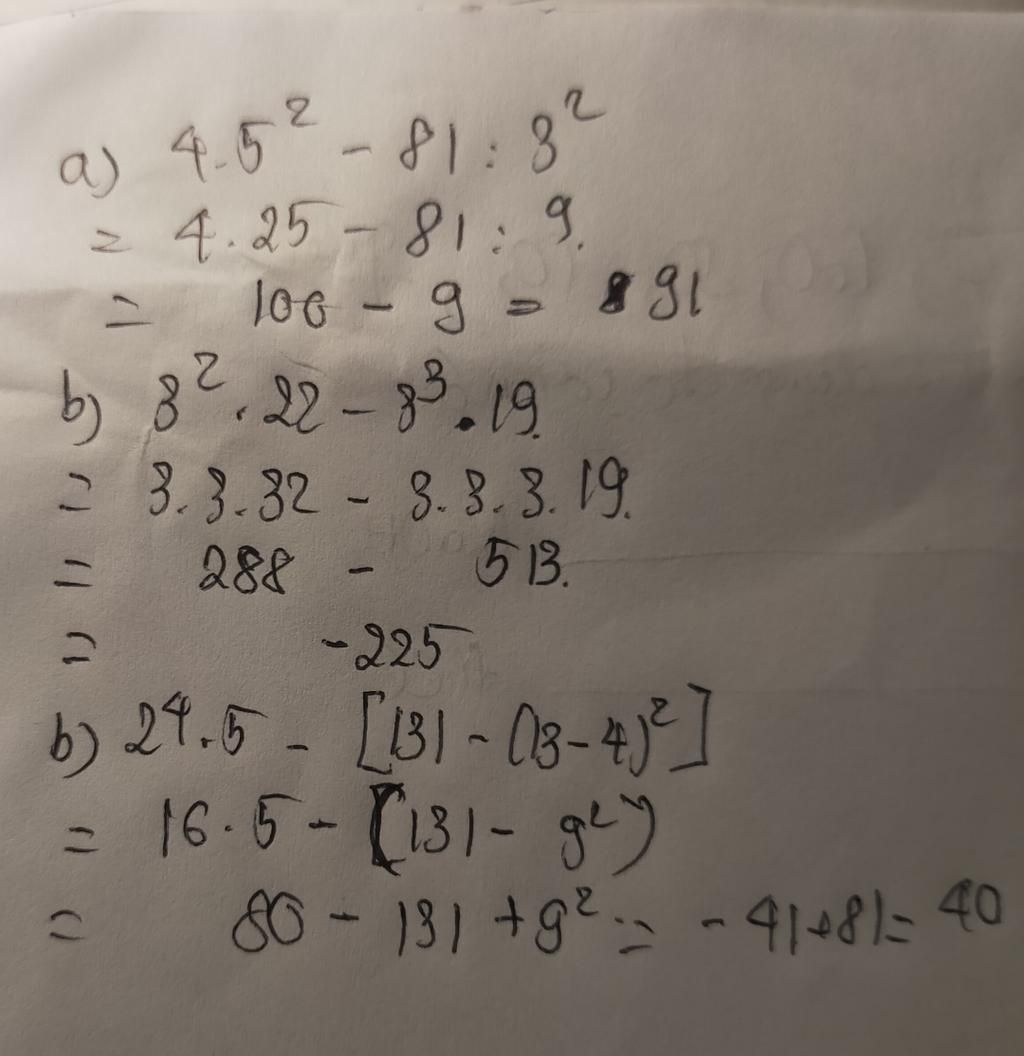 a) 4.5² - 81 : 3²
= 4.25 - 81 : 9.
= 100 - 9 = 91
b) 3² . 22 - 3³ . 19.
= 3.3.32 - 3.3.3.19.
= 288 - 513.
= -225
b) 2⁴.5 - [131 - (13-4)²]
= 16.5 - (131 - 9²)
= 80 - 131 + 9² = -41+81= 40